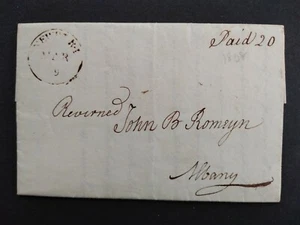 Paid 20
9
Reverned
John B Romeyn
Albany